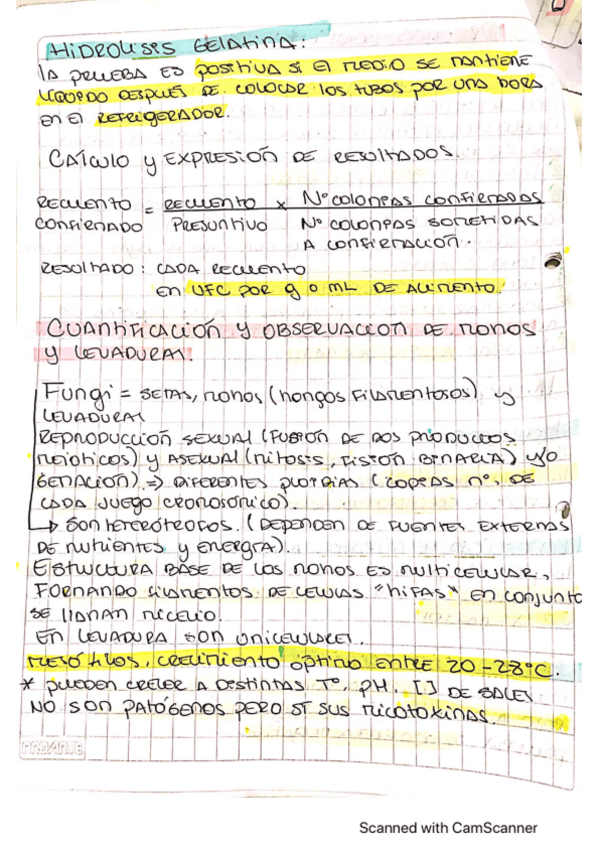 HIDROLISIS GELATINA:
LA PRUEBA ES POSITIVA SI EL MEDIO SE MANTIENE
LIQUIDO DESPUÉS DE COLOCAR LOS TUBOS POR UNA HORA
EN EL REFRIGERADOR.
CALCULO Y EXPRESIÓN DE RESULTADOS.
RECUENTO = RECUENTO x Nº COLONIAS CONFIRMADAS
CONFIRMADO PRESUNTIVO Nº COLONIAS SOMETIDAS
A CONFIRMACIÓN.
RESULTADO: CADA RECUENTO
EN UFC POR g O ML DE ALIMENTO.
CUANTIFICACIÓN Y OBSERVACION DE MOHOS
Y LEVADURAS.
Fungi = SETAS, MOHOS (HONGOS FILAMENTOSOS) y
LEVADURAS
REPRODUCCIÓN SEXUAL (FUSIÓN DE DOS PRODUCTOS
MEIOTICOS) Y ASEXUAL (MITOSIS, FISIÓN BINARIA) Y/O
GEMACIÓN) => DIFERENTES PLOIDIAS (COPIAS Nº, DE
CADA JUEGO CROMOSÓMICO).
→ SON HETERÓTROFOS. (DEPENDEN DE FUENTES EXTERNAS
DE NUTRIENTES Y ENERGÍA).
ESTRUCTURA BASE DE LOS MOHOS ES MULTICELULAR,
FORMANDO FILAMENTOS DE CELULAS "HIFAS" EN CONJUNTO
SE LLAMAN MICELIO.
EN LEVADURA SON UNICELULARES.
MESÓFILOS, CRECIMIENTO ÓPTIMO ENTRE 20-28°C.
* PUEDEN CRECER A DISTINTAS Tº, PH, [] DE SALES
NO SON PATÓGENOS PERO SÍ SUS MICOTOXINAS.
PROARTE
Scanned with CamScanner